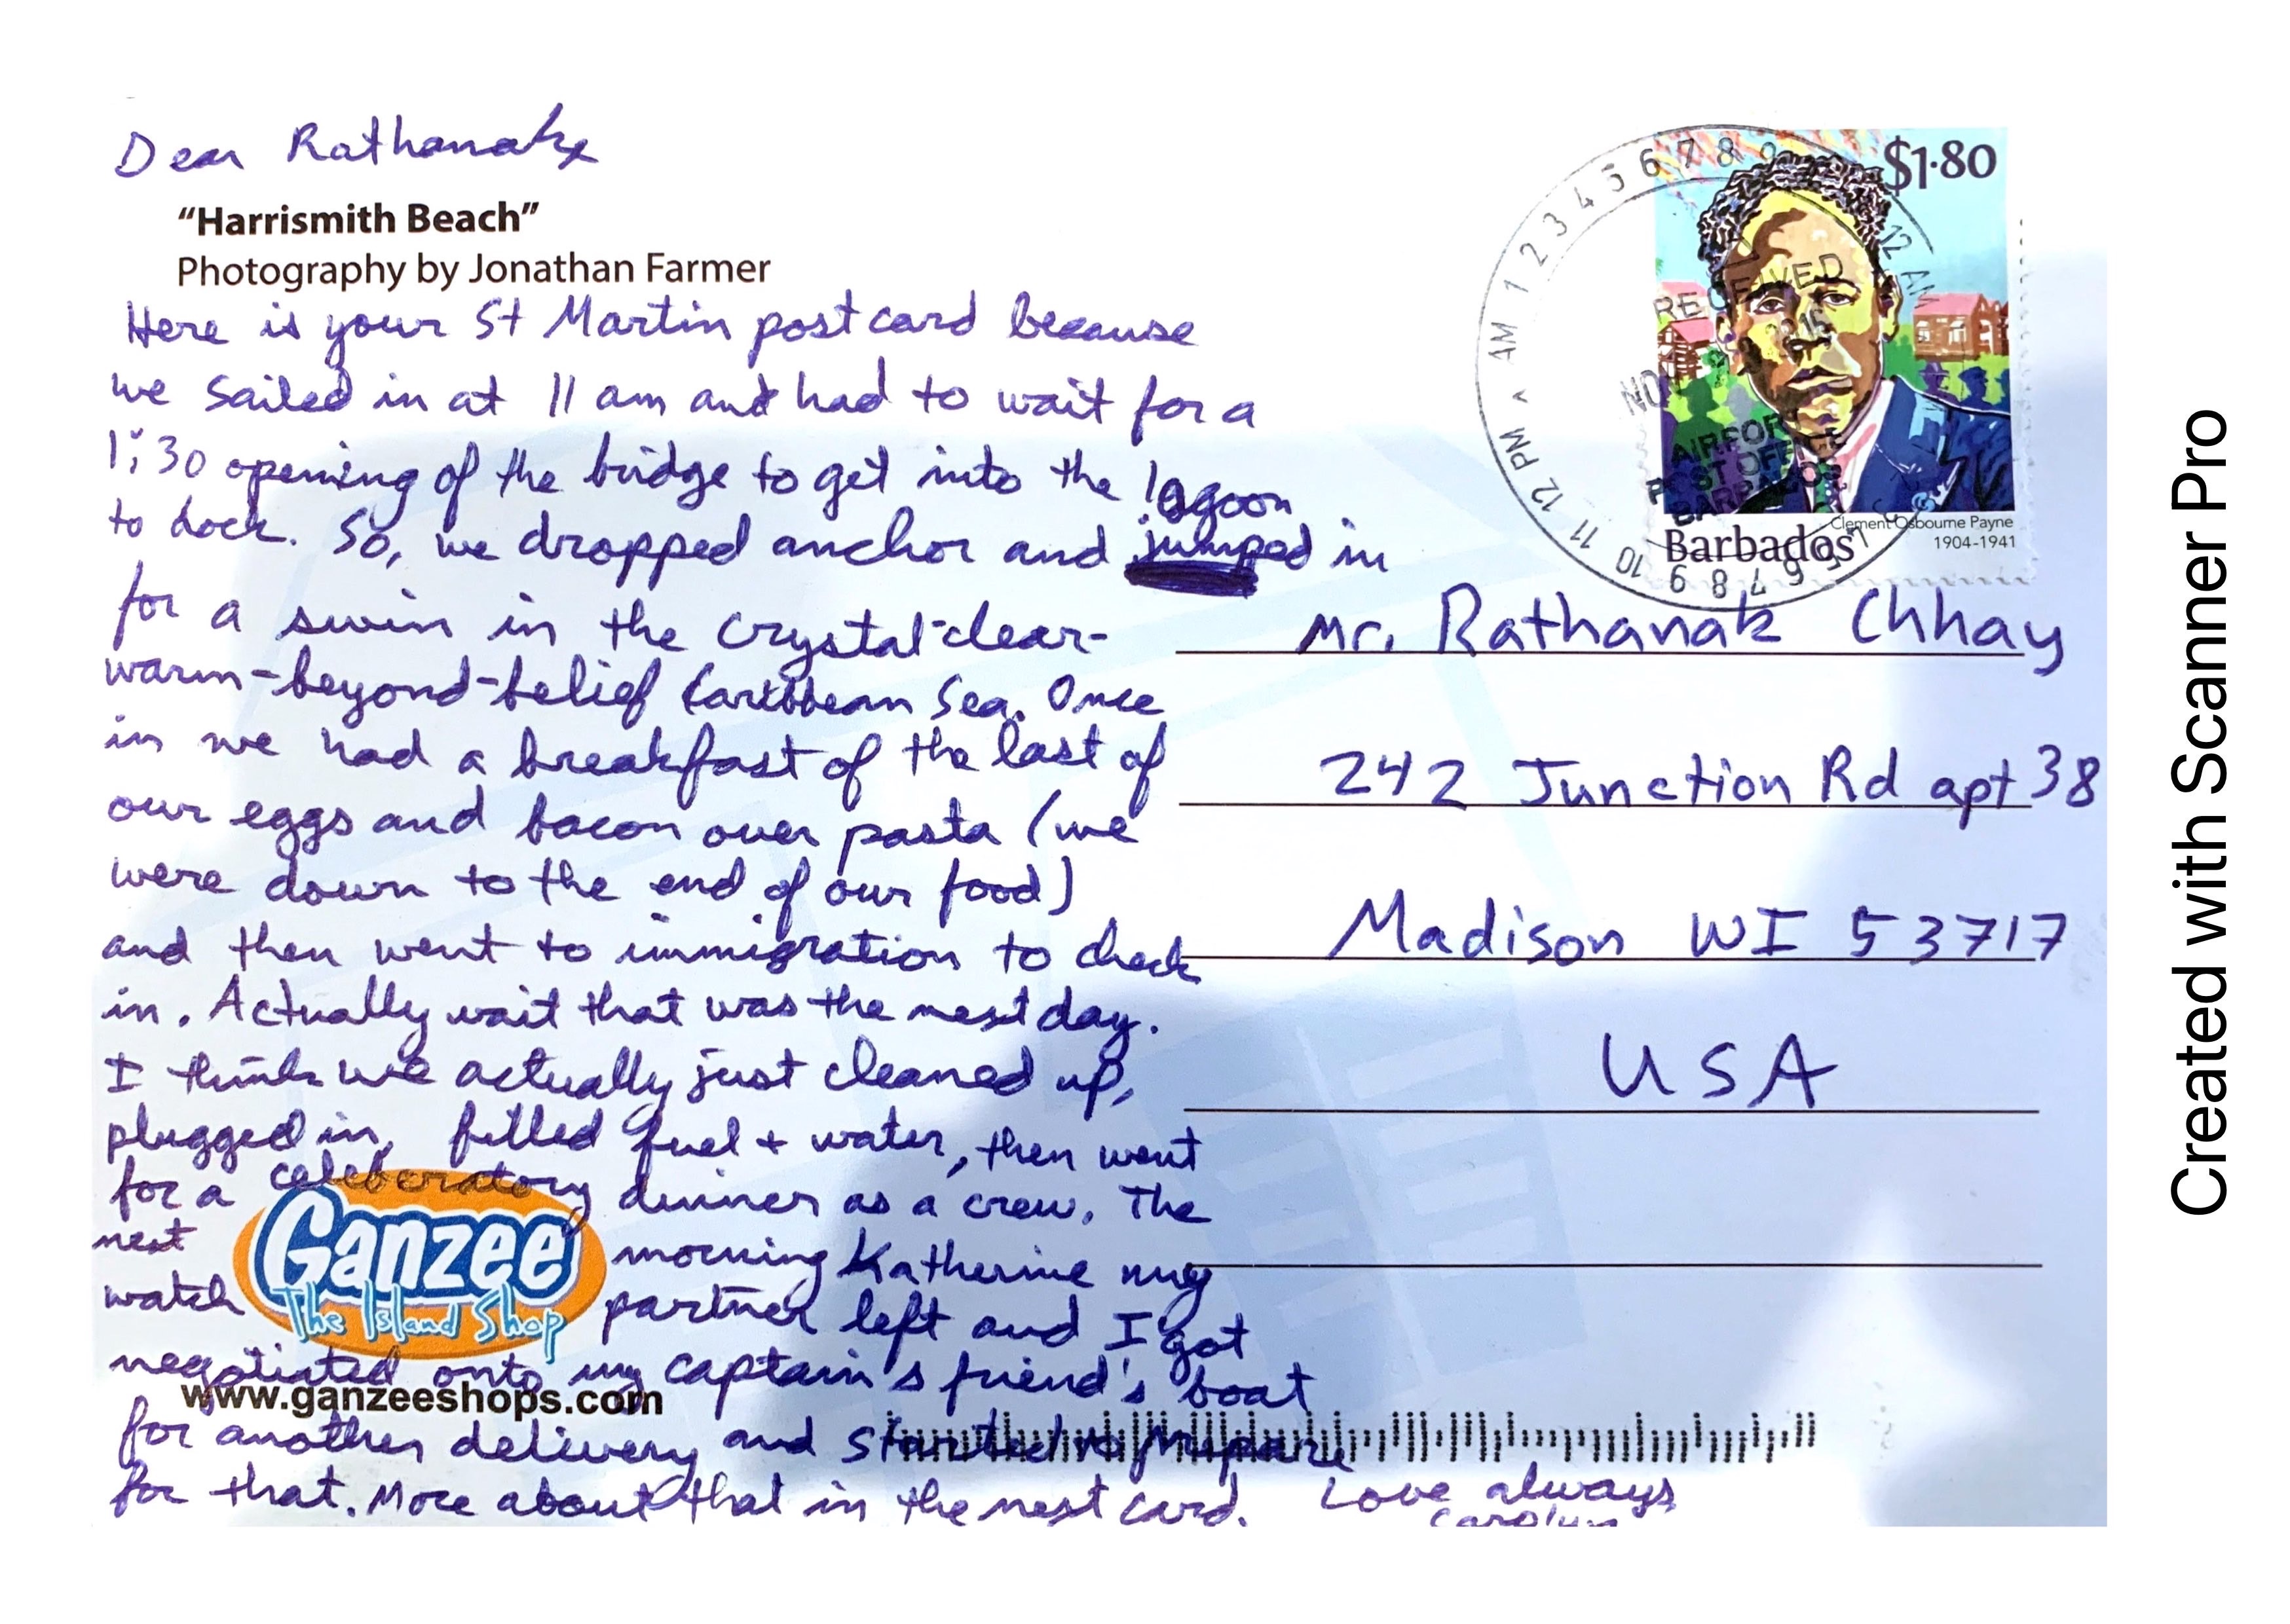 Dear Rathanak,
“Harrismith Beach”
Photography by Jonathan Farmer
Here is your St Martin postcard because
we sailed in at 11 am and had to wait for a
1:30 opening of the bridge to get into the lagoon
to dock. So, we dropped anchor and jumped in
for a swim in the crystal-clear-
warm-beyond-belief Caribbean Sea. Once
in we had a breakfast of the last of
our eggs and bacon over pasta (we
were down to the end of our food)
and then went to immigration to check
in. Actually wait that was the next day.
I think we actually just cleaned up,
plugged in, filled fuel + water, then went
for a celeberatory dinner as a crew. The
next morning Katherine my
watch partner left and I got
negotiated onto my captain's friend's boat
for another delivery and started to prepare
for that. More about that in the next card.
Love always
Carolyn
Ganzee
The Island Shop
www.ganzeeshops.com
$1.80
Clement Osbourne Payne
1904-1941
Barbados
AM 1 2 3 4 5 6 7 8 9 12 AM
12 PM 11 10 9 8 7 6 5
RECEIVED
AIRPORT
POST OFFICE
BARBADOS
Mr. Rathanak Chhay
242 Junction Rd apt 38
Madison WI 53717
USA
Created with Scanner Pro